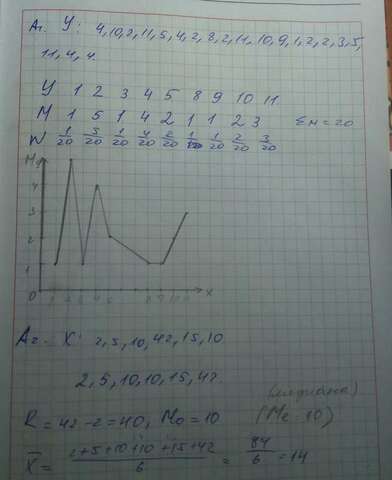 А1. У: 4,10,2,11,5,4,2,8,2,11,10,9,1,2,2,3,5,
11,4,4.
У 1 2 3 4 5 8 9 10 11
М 1 5 1 4 2 1 1 2 3 Σм=20
W 1/20 5/20 1/20 4/20 2/20 1/20 1/20 2/20 3/20
М
4
3
2
1
0 X
А2. X: 2,5,10,42,15,10
2,5,10,10,15,42
(медиана)
R = 42-2=40, Mo=10 (Me=10)
X̅ = 2+5+10+10+15+42/6 = 84/6 = 14